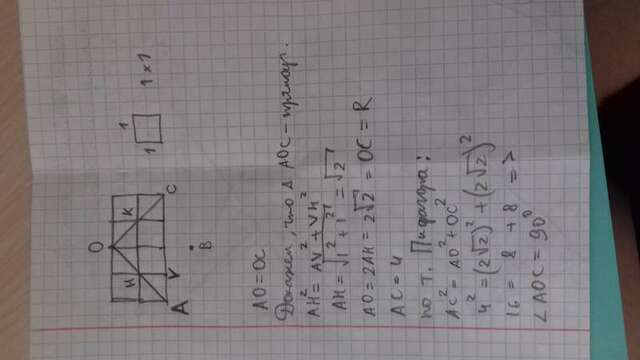 O
H
K
A
V
C
B
1
1
1 x 1
AO = OC
Докажем, что △ AOC - прямоуг.
AH² = AV² + VH²
AH = √1² + 1² = √2
AO = 2AH = 2√2 = OC = R
AC = 4
по т. Пифагора:
AC² = AO² + OC²
4² = (2√2)² + (2√2)²
16 = 8 + 8 =>
∠AOC = 90°